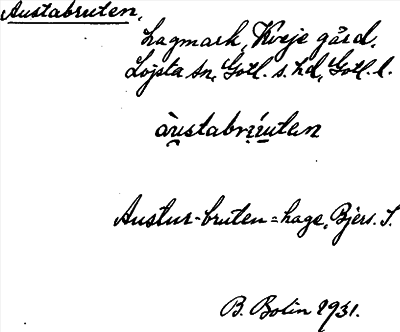 Austabruten,
hagmark, Kveje gård,
Lojsta sn, Gotl. s. hd, Gotl. l.
àustabrúuten
Austur-bruten=hage, Bjers. S.
B. Bolin 1931.